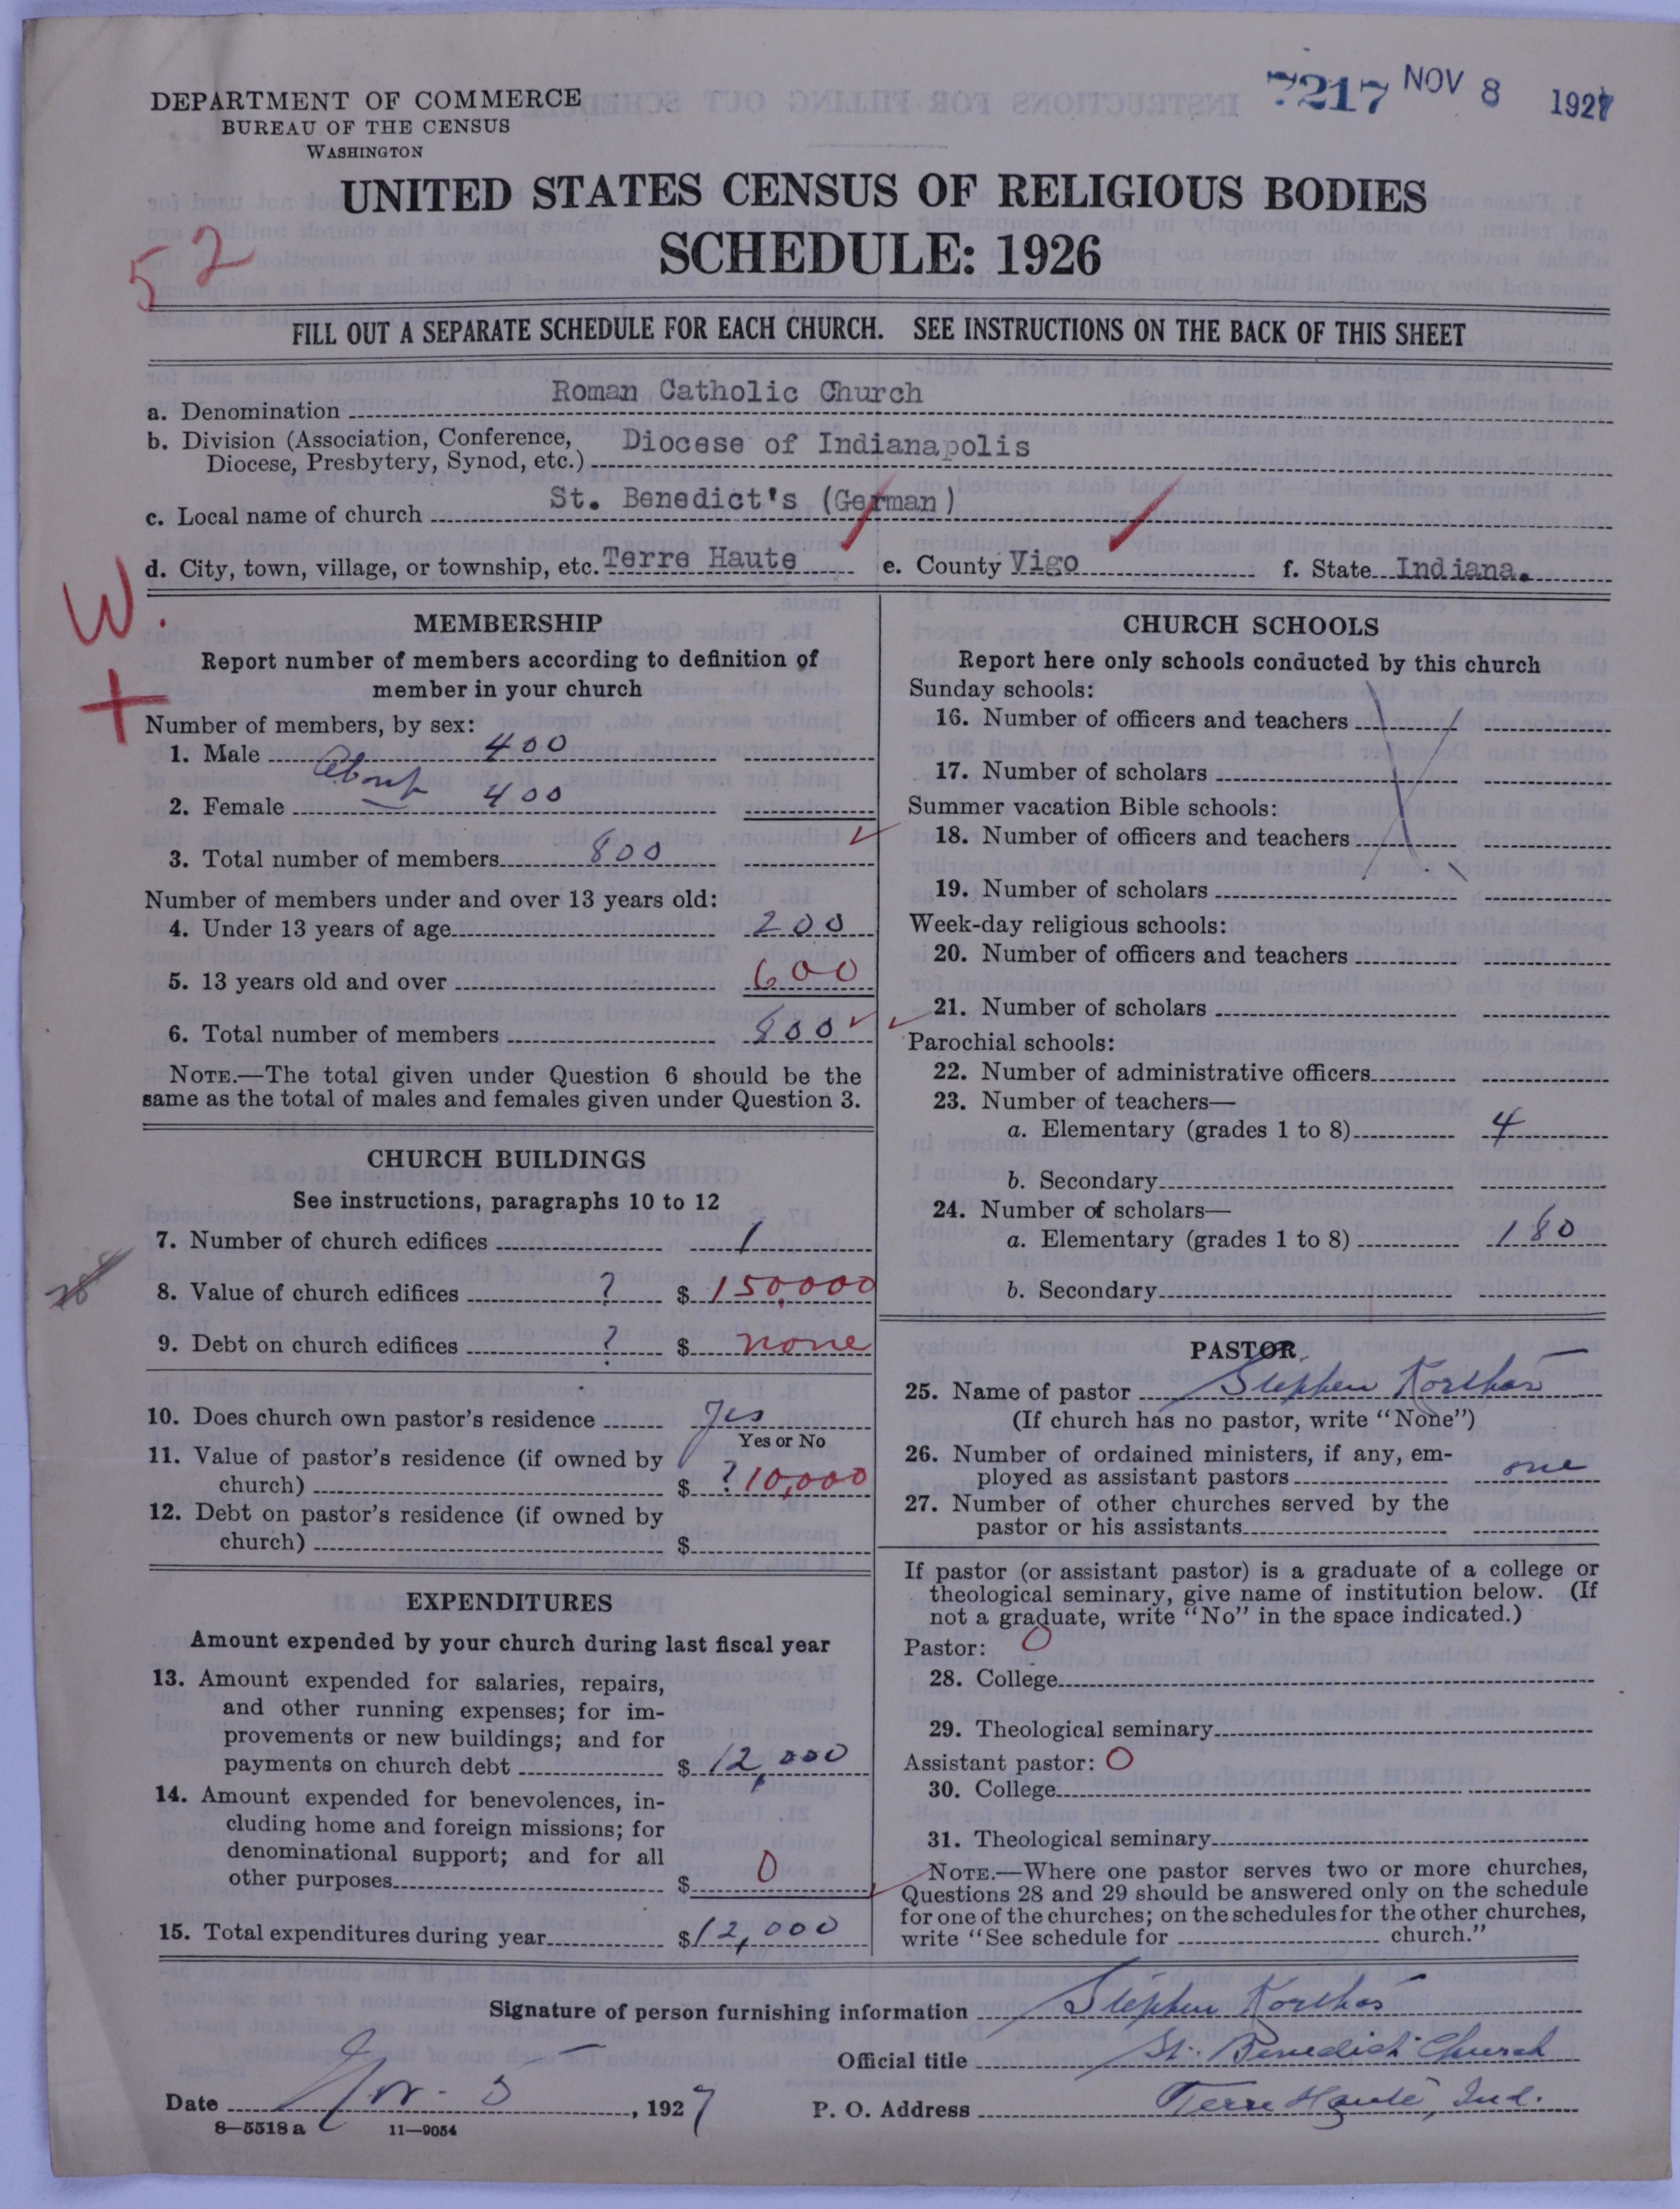 7217 NOV 8 1927
DEPARTMENT OF COMMERCE
BUREAU OF THE CENSUS
WASHINGTON
UNITED STATES CENSUS OF RELIGIOUS BODIES
SCHEDULE: 1926
52
FILL OUT A SEPARATE SCHEDULE FOR EACH CHURCH. SEE INSTRUCTIONS ON THE BACK OF THIS SHEET
a. Denomination Roman Catholic Church
b. Division (Association, Conference, Diocese of Indianapolis
Diocese, Presbytery, Synod, etc.)
c. Local name of church St. Benedict's (German)
d. City, town, village, or township, etc. Terre Haute e. County Vigo f. State Indiana.
W.
+
MEMBERSHIP
Report number of members according to definition of
member in your church
Number of members, by sex:
1. Male 400
About
2. Female 400
3. Total number of members 800
Number of members under and over 13 years old:
4. Under 13 years of age 200
5. 13 years old and over 600
6. Total number of members 800
NOTE.—The total given under Question 6 should be the
same as the total of males and females given under Question 3.
CHURCH BUILDINGS
See instructions, paragraphs 10 to 12
7. Number of church edifices 1
8. Value of church edifices ? $ 150,000
9. Debt on church edifices ? $ none
10. Does church own pastor's residence Yes
Yes or No
11. Value of pastor's residence (if owned by
church) $ ? 10,000
12. Debt on pastor's residence (if owned by
church) $
EXPENDITURES
Amount expended by your church during last fiscal year
13. Amount expended for salaries, repairs,
and other running expenses; for im-
provements or new buildings; and for
payments on church debt $ 12,000
14. Amount expended for benevolences, in-
cluding home and foreign missions; for
denominational support; and for all
other purposes $ 0
15. Total expenditures during year $ 12,000
CHURCH SCHOOLS
Report here only schools conducted by this church
Sunday schools:
16. Number of officers and teachers
17. Number of scholars
Summer vacation Bible schools:
18. Number of officers and teachers
19. Number of scholars
Week-day religious schools:
20. Number of officers and teachers
21. Number of scholars
Parochial schools:
22. Number of administrative officers
23. Number of teachers—
a. Elementary (grades 1 to 8) 4
b. Secondary
24. Number of scholars—
a. Elementary (grades 1 to 8) 180
b. Secondary
PASTOR
25. Name of pastor Stephen Korthas
(If church has no pastor, write "None")
26. Number of ordained ministers, if any, em-
ployed as assistant pastors one
27. Number of other churches served by the
pastor or his assistants
If pastor (or assistant pastor) is a graduate of a college or
theological seminary, give name of institution below. (If
not a graduate, write "No" in the space indicated.)
Pastor: 0
28. College
29. Theological seminary
Assistant pastor: 0
30. College
31. Theological seminary
NOTE.—Where one pastor serves two or more churches,
Questions 28 and 29 should be answered only on the schedule
for one of the churches; on the schedules for the other churches,
write "See schedule for church."
Signature of person furnishing information Stephen Korthas
Official title St. Benedict Church
Date Nov. 5, 1927 P. O. Address Terre Haute, Ind.
8—5518 a 11—9054